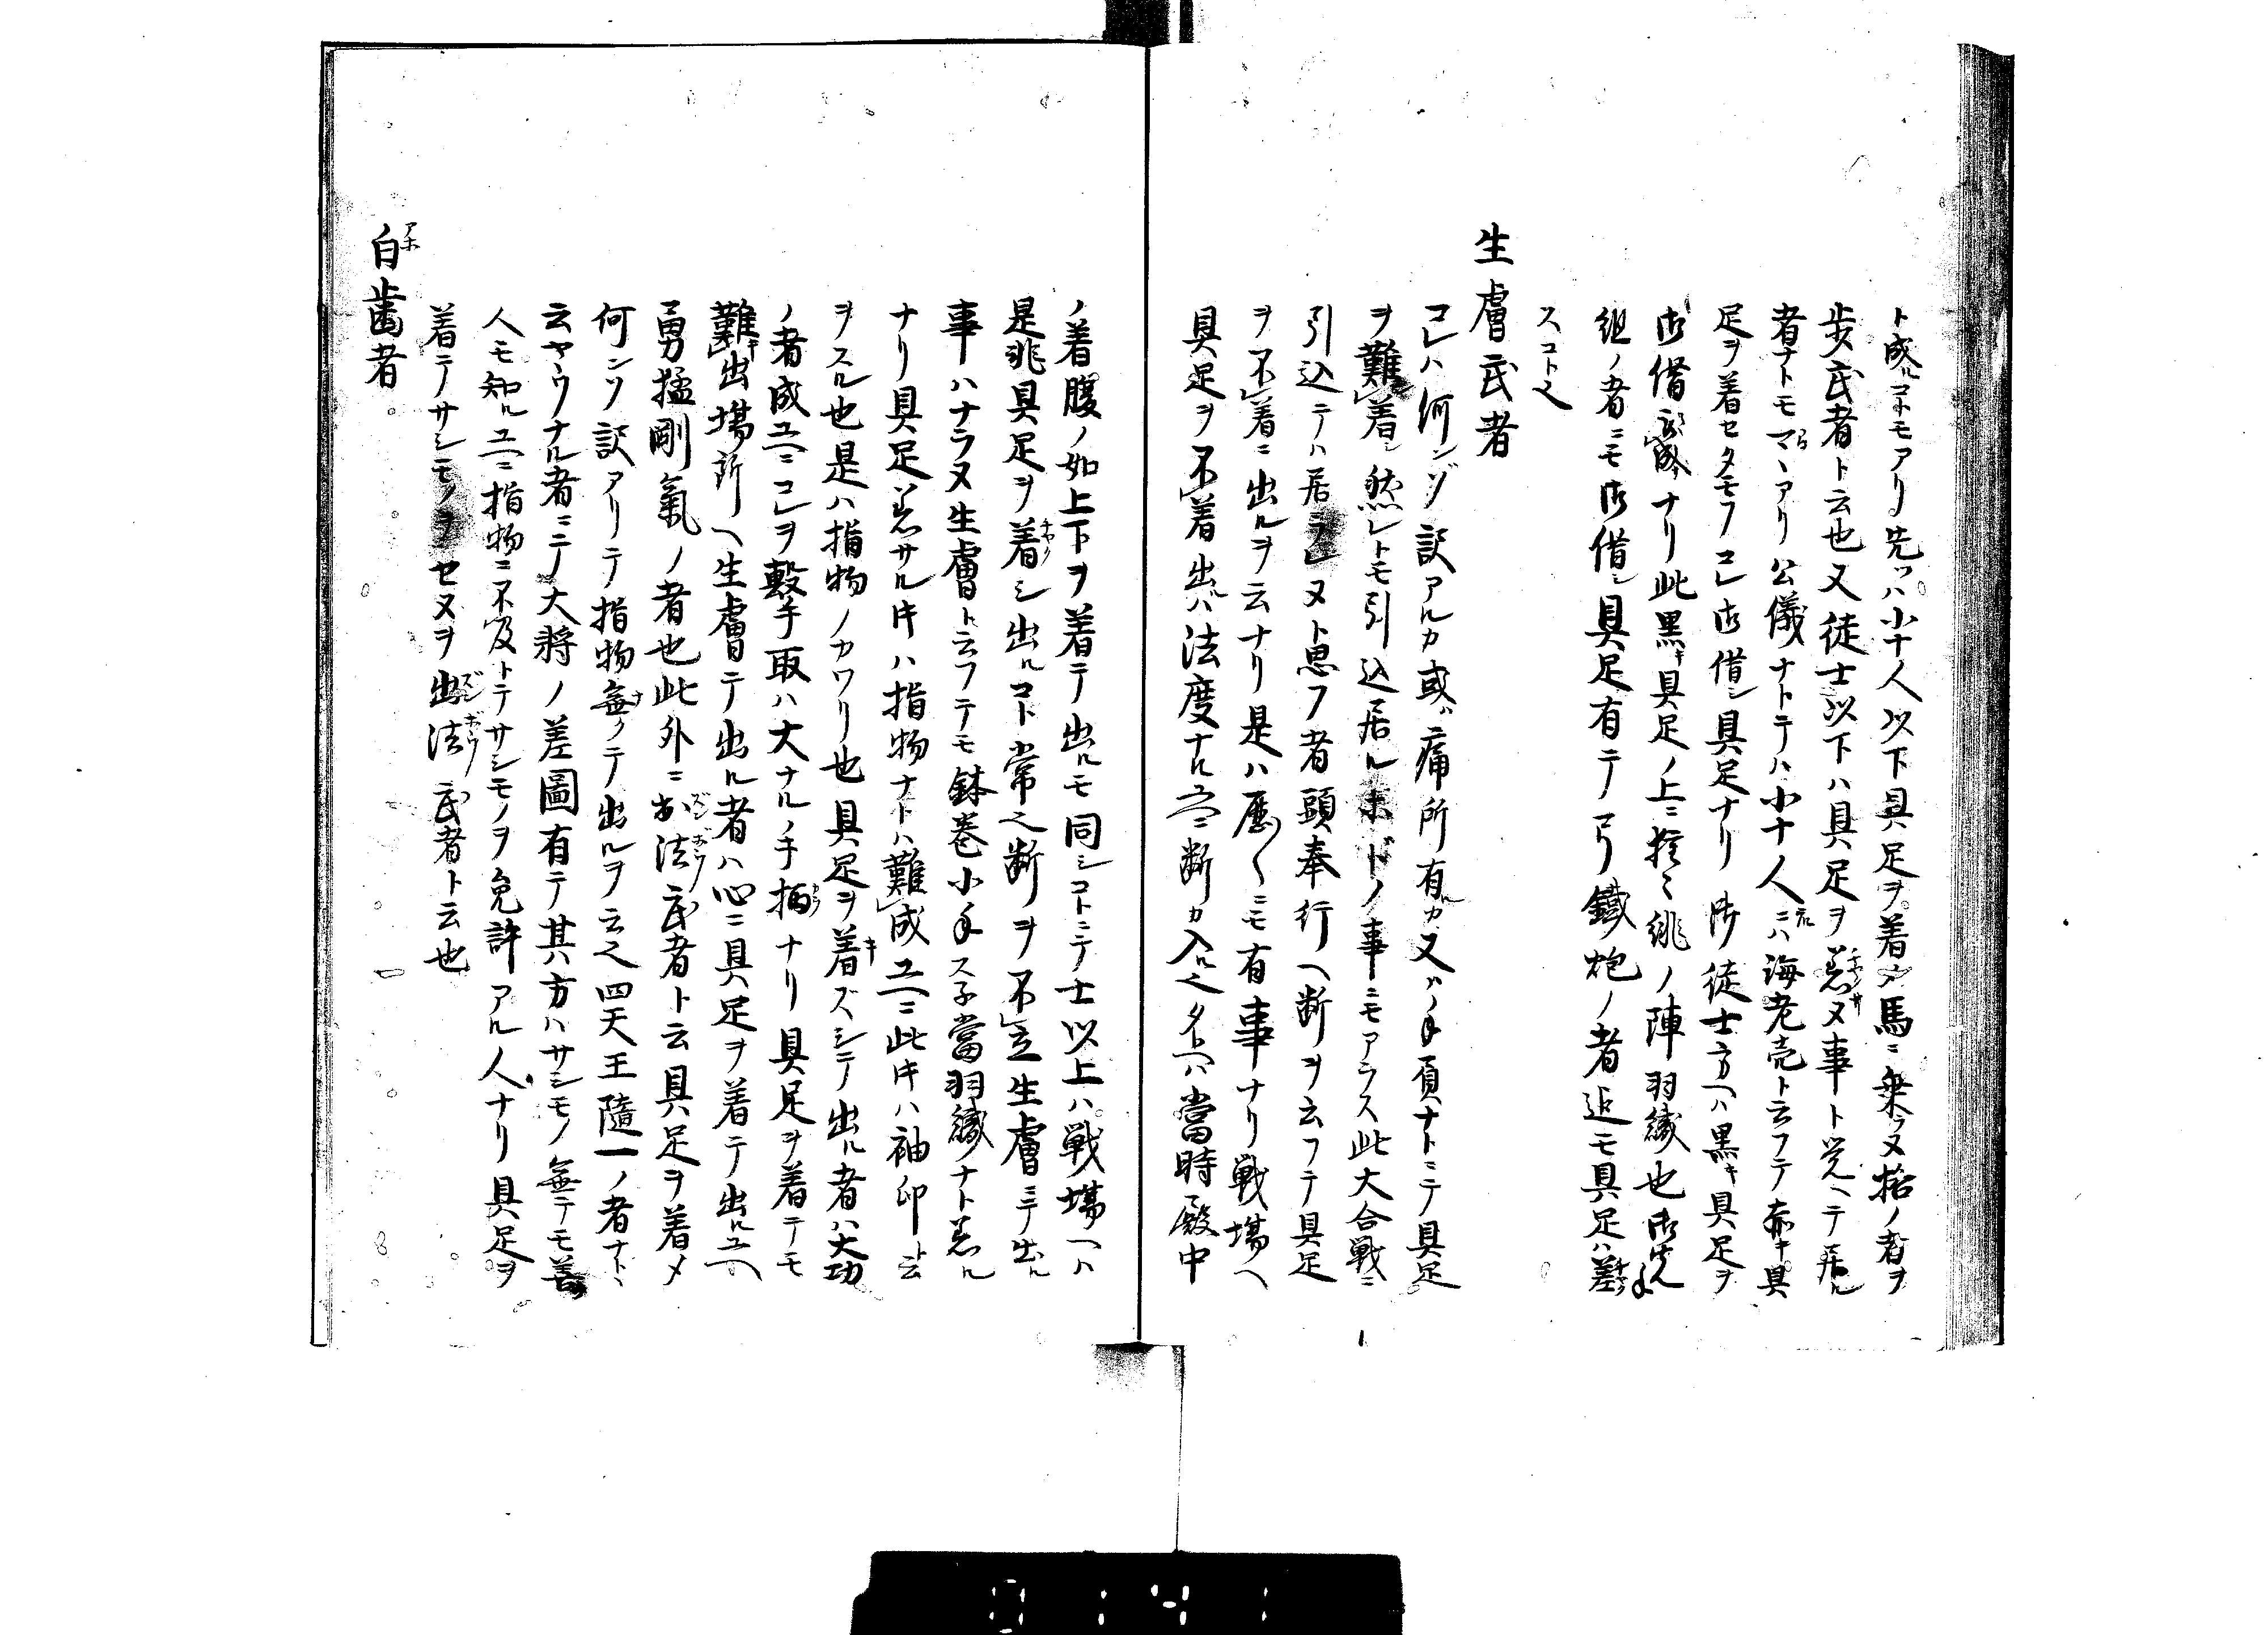 ト成ルコトモアリ先ツハ小十人以下具足ヲ着メ馬ニ乗ラヌ格ノ者ヲ
歩武者ト云也又徒士以下ハ具足ヲ著ヌ事ト覚ヘテ居ル
者ナトモマヽアリ公儀ナトテハ小十人ニハ海老売ト云フテ赤キ具
足ヲ着セタモフコレ御借シ具足ナリ御徒士方ヘハ黒キ具足ヲ
御借ナリ此黒キ具足ノ上ニ猩々緋ノ陣羽織也御先手
組ノ者ニモ御借シ具足有テ弓鐵炮ノ者迠モ具足ハ差
スコト也
生膚武者
コレハ何ンゾ訳アルカ或ハ痛所有ルカ又ハ手負ナトニテ具足
ヲ難着シ然レトモ引込居ルホドノ事ニモアラス此大合戦ニ
引込テハ居ラレヌト思フ者頭奉行ヘ断ヲ云フテ具足
ヲ不着ニ出ルヲ云ナリ是ハ歴〱ニモ有事ナリ戦場ヘ
具足ヲ不着出ハ法度ナル故ニ断カ入ル也タトヘハ當時殿中
ノ着服ノ如上下ヲ着テ出ルモ同シコトニテ士以上ハ戦場ヘハ
是非具足ヲ着シ出ルコト常也断ヲ不立生膚ニテ出ル
事ハナラヌ生膚ト云フテモ鉢巻小手スネ當羽織ナト著ル
ナリ具足著サル時ハ指物ナトハ難成ユヘニ此時ハ袖印ト云
ヲスル也是ハ指物ノカワリ也具足ヲ着ズシテ出ル者ハ大功
ノ者成ユヘニコレヲ撃手取ハ大ナルノ手柄ナリ具足ヲ着テモ
難キ出場所ヘ生膚テ出ル者ハ心ニ具足ヲ着テ出ルユヘ
勇猛剛氣ノ者也此外ニ出法武者ト云具足ヲ着メ
何ンソ訳アリテ指物無クテ出ルヲ云也四天王隨一ノ者ナトヽ
云ヤウナル者ニテ大将ノ差圖有テ其方ハサシモノ無テモ善
人モ知ルユヘニ指物ニ不及トテサシモノヲ免許アル人ナリ具足ヲ
着テノサシモノヲセヌヲ出法武者ト云也
白歯者